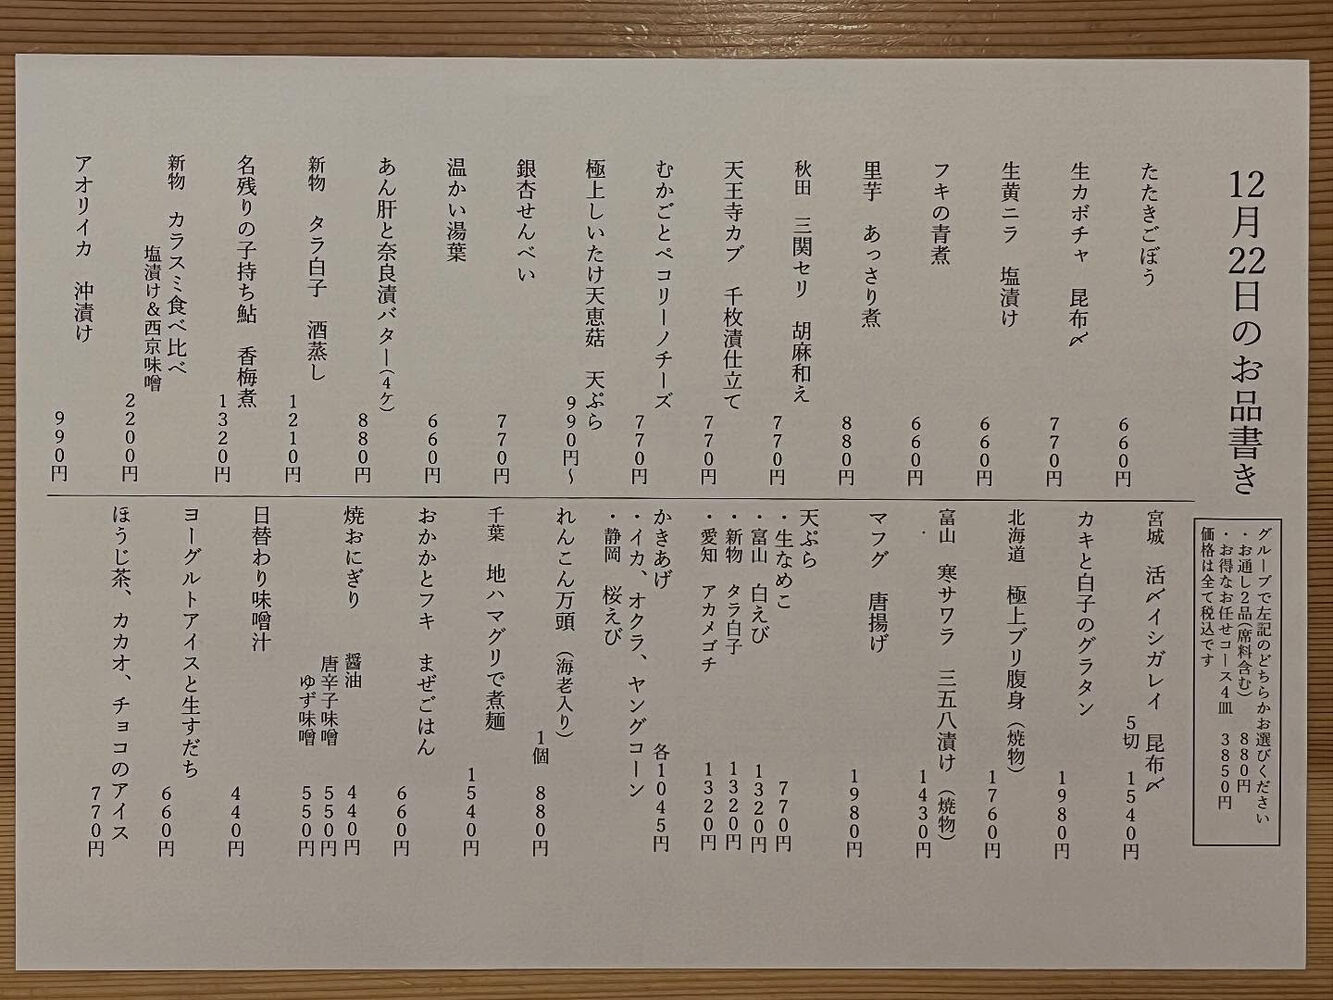 12月22日のお品書き
グループで左記のどちらかお選びください
・お通し2品(席料含む) 880円
・お得なお任せコース4皿 3850円
価格は全て税込です
たたきごぼう 660円
生カボチャ 昆布〆 770円
生黄ニラ 塩漬け 660円
フキの青煮 660円
里芋 あっさり煮 880円
秋田 三関セリ 胡麻和え 770円
天王寺カブ 千枚漬仕立て 770円
むかごとペコリーノチーズ 770円
極上しいたけ天恵菇 天ぷら 990円〜
銀杏せんべい 770円
温かい湯葉 660円
あん肝と奈良漬バター(4ケ) 880円
新物 タラ白子 酒蒸し 1210円
名残りの子持ち鮎 香梅煮 1320円
新物 カラスミ食べ比べ
塩漬け&西京味噌 2200円
アオリイカ 沖漬け 990円
宮城 活〆イシガレイ 昆布〆
5切 1540円
カキと白子のグラタン 1980円
北海道 極上ブリ腹身(焼物) 1760円
富山 寒サワラ 三五八漬け(焼物) 1430円
マフグ 唐揚げ 1980円
天ぷら
・生なめこ 770円
・富山 白えび 1320円
・新物 タラ白子 1320円
・愛知 アカメゴチ 1320円
かきあげ 各1045円
・イカ、オクラ、ヤングコーン
・静岡 桜えび
れんこん万頭(海老入り)
1個 880円
千葉 地ハマグリで煮麺 1540円
おかかとフキ まぜごはん 660円
焼おにぎり 醤油 440円
唐辛子味噌 550円
ゆず味噌 550円
日替わり味噌汁 440円
ヨーグルトアイスと生すだち 660円
ほうじ茶、カカオ、チョコのアイス 770円